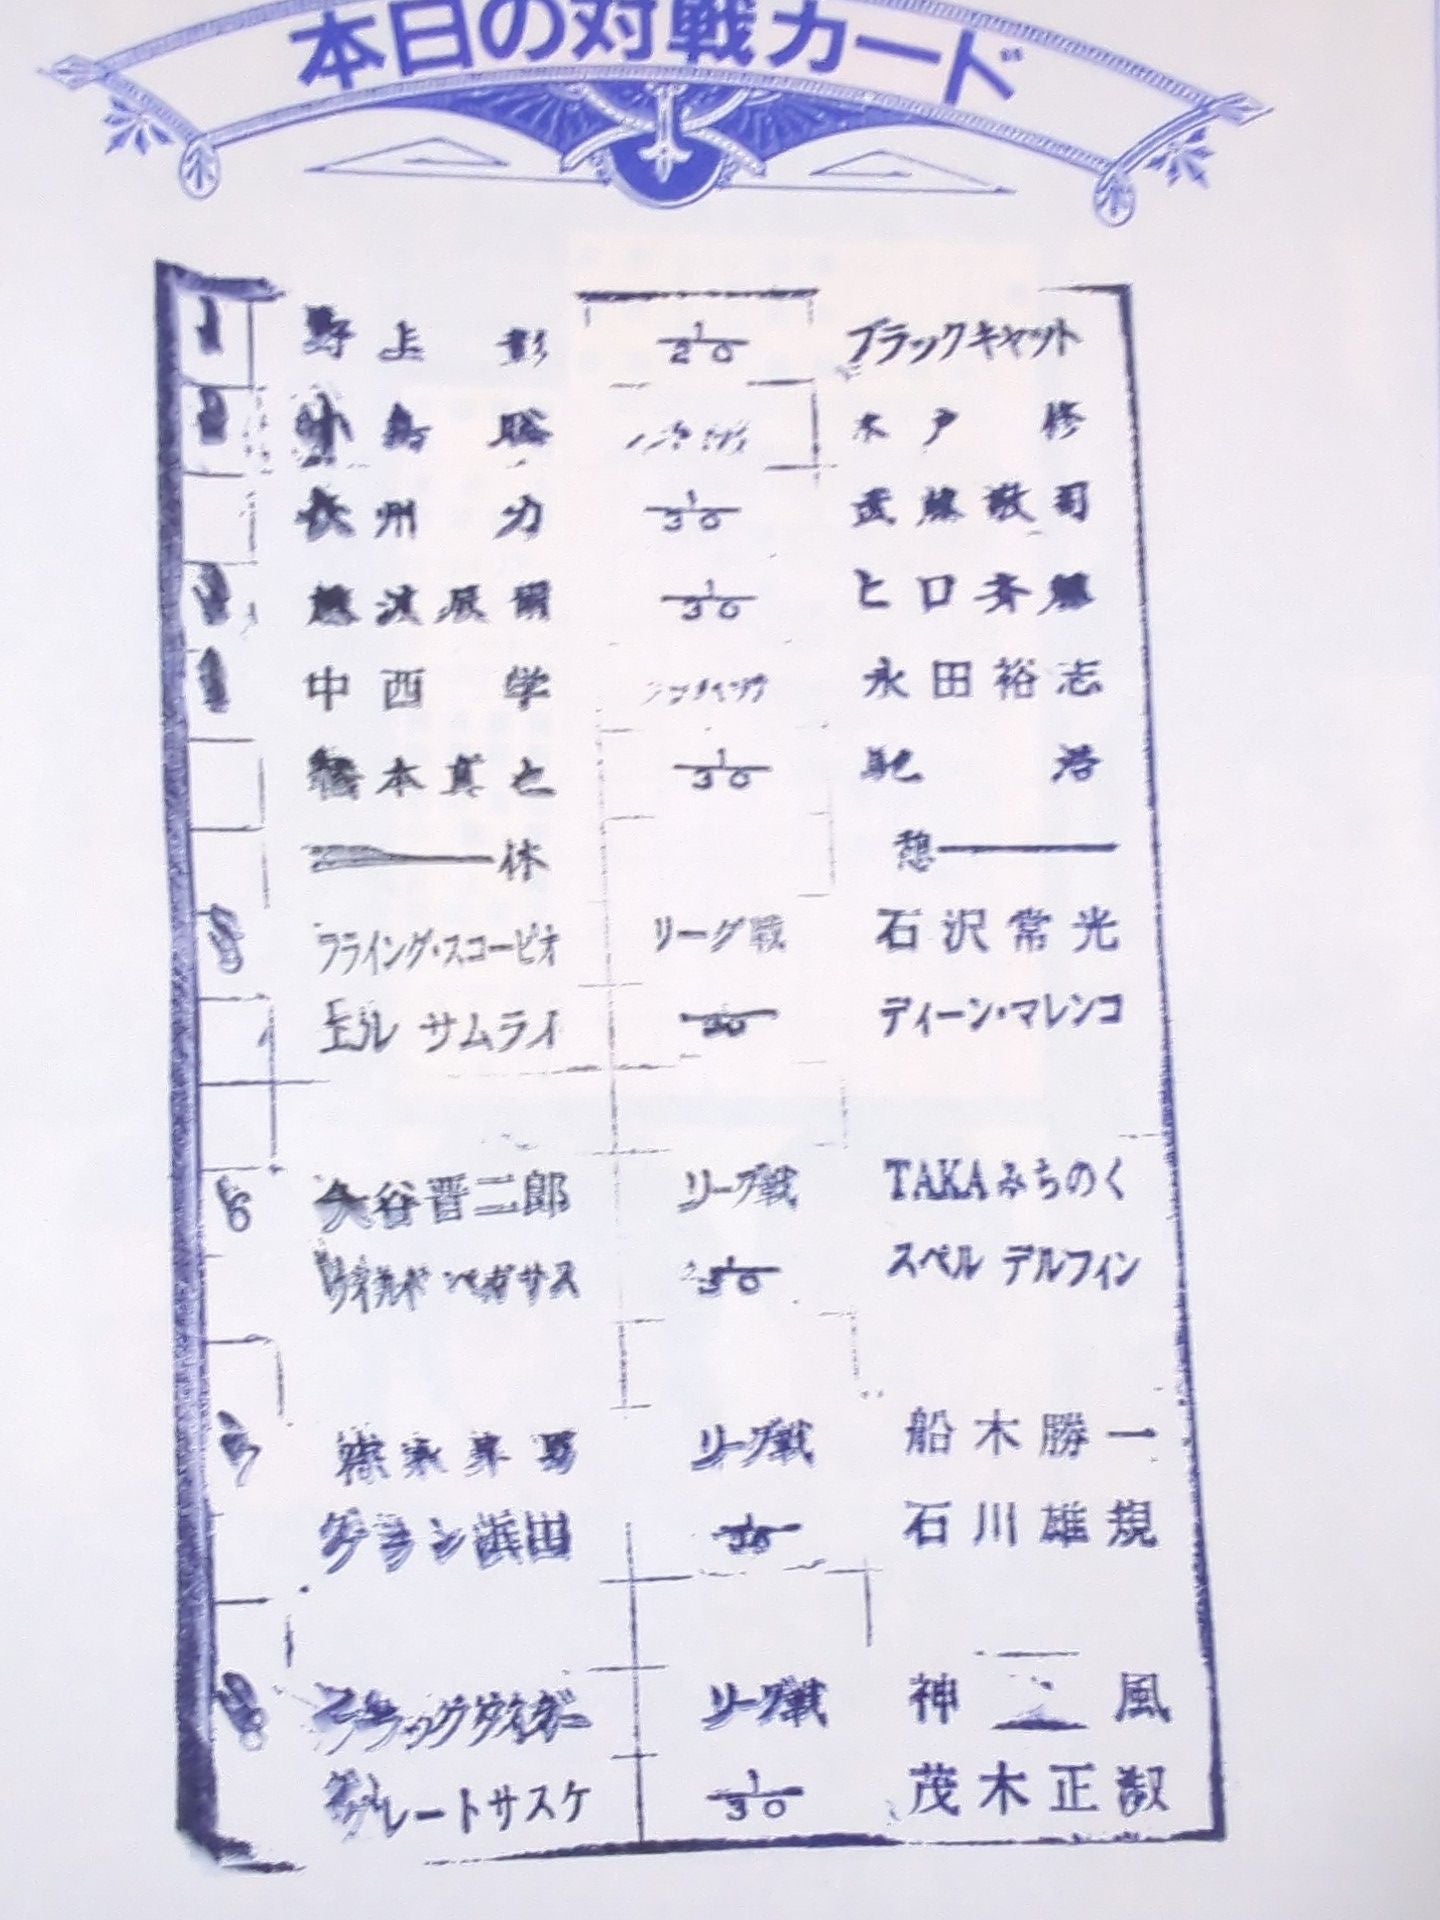 本日の対戦カード
1 野上 彰 1/20 ブラックキャット
小島 聡 木戸 修
長州 力 1/30 武藤敬司
藤波辰爾 1/30 ヒロ斉藤
中西 学 シングルマッチ 永田裕志
橋本真也 1/30 馳 浩
休 憩
フライング・スコーピオ リーグ戦 石沢常光
エル サムライ 1/30 ディーン・マレンコ
6 大谷晋二郎 リーグ戦 TAKAみちのく
ワイルド ペガサス 1/30 スペル デルフィン
リーグ戦 船木勝一
グラン浜田 1/30 石川雄規
8 ブラックタイガー リーグ戦 神 風
グレートサスケ 1/30 茂木正淑